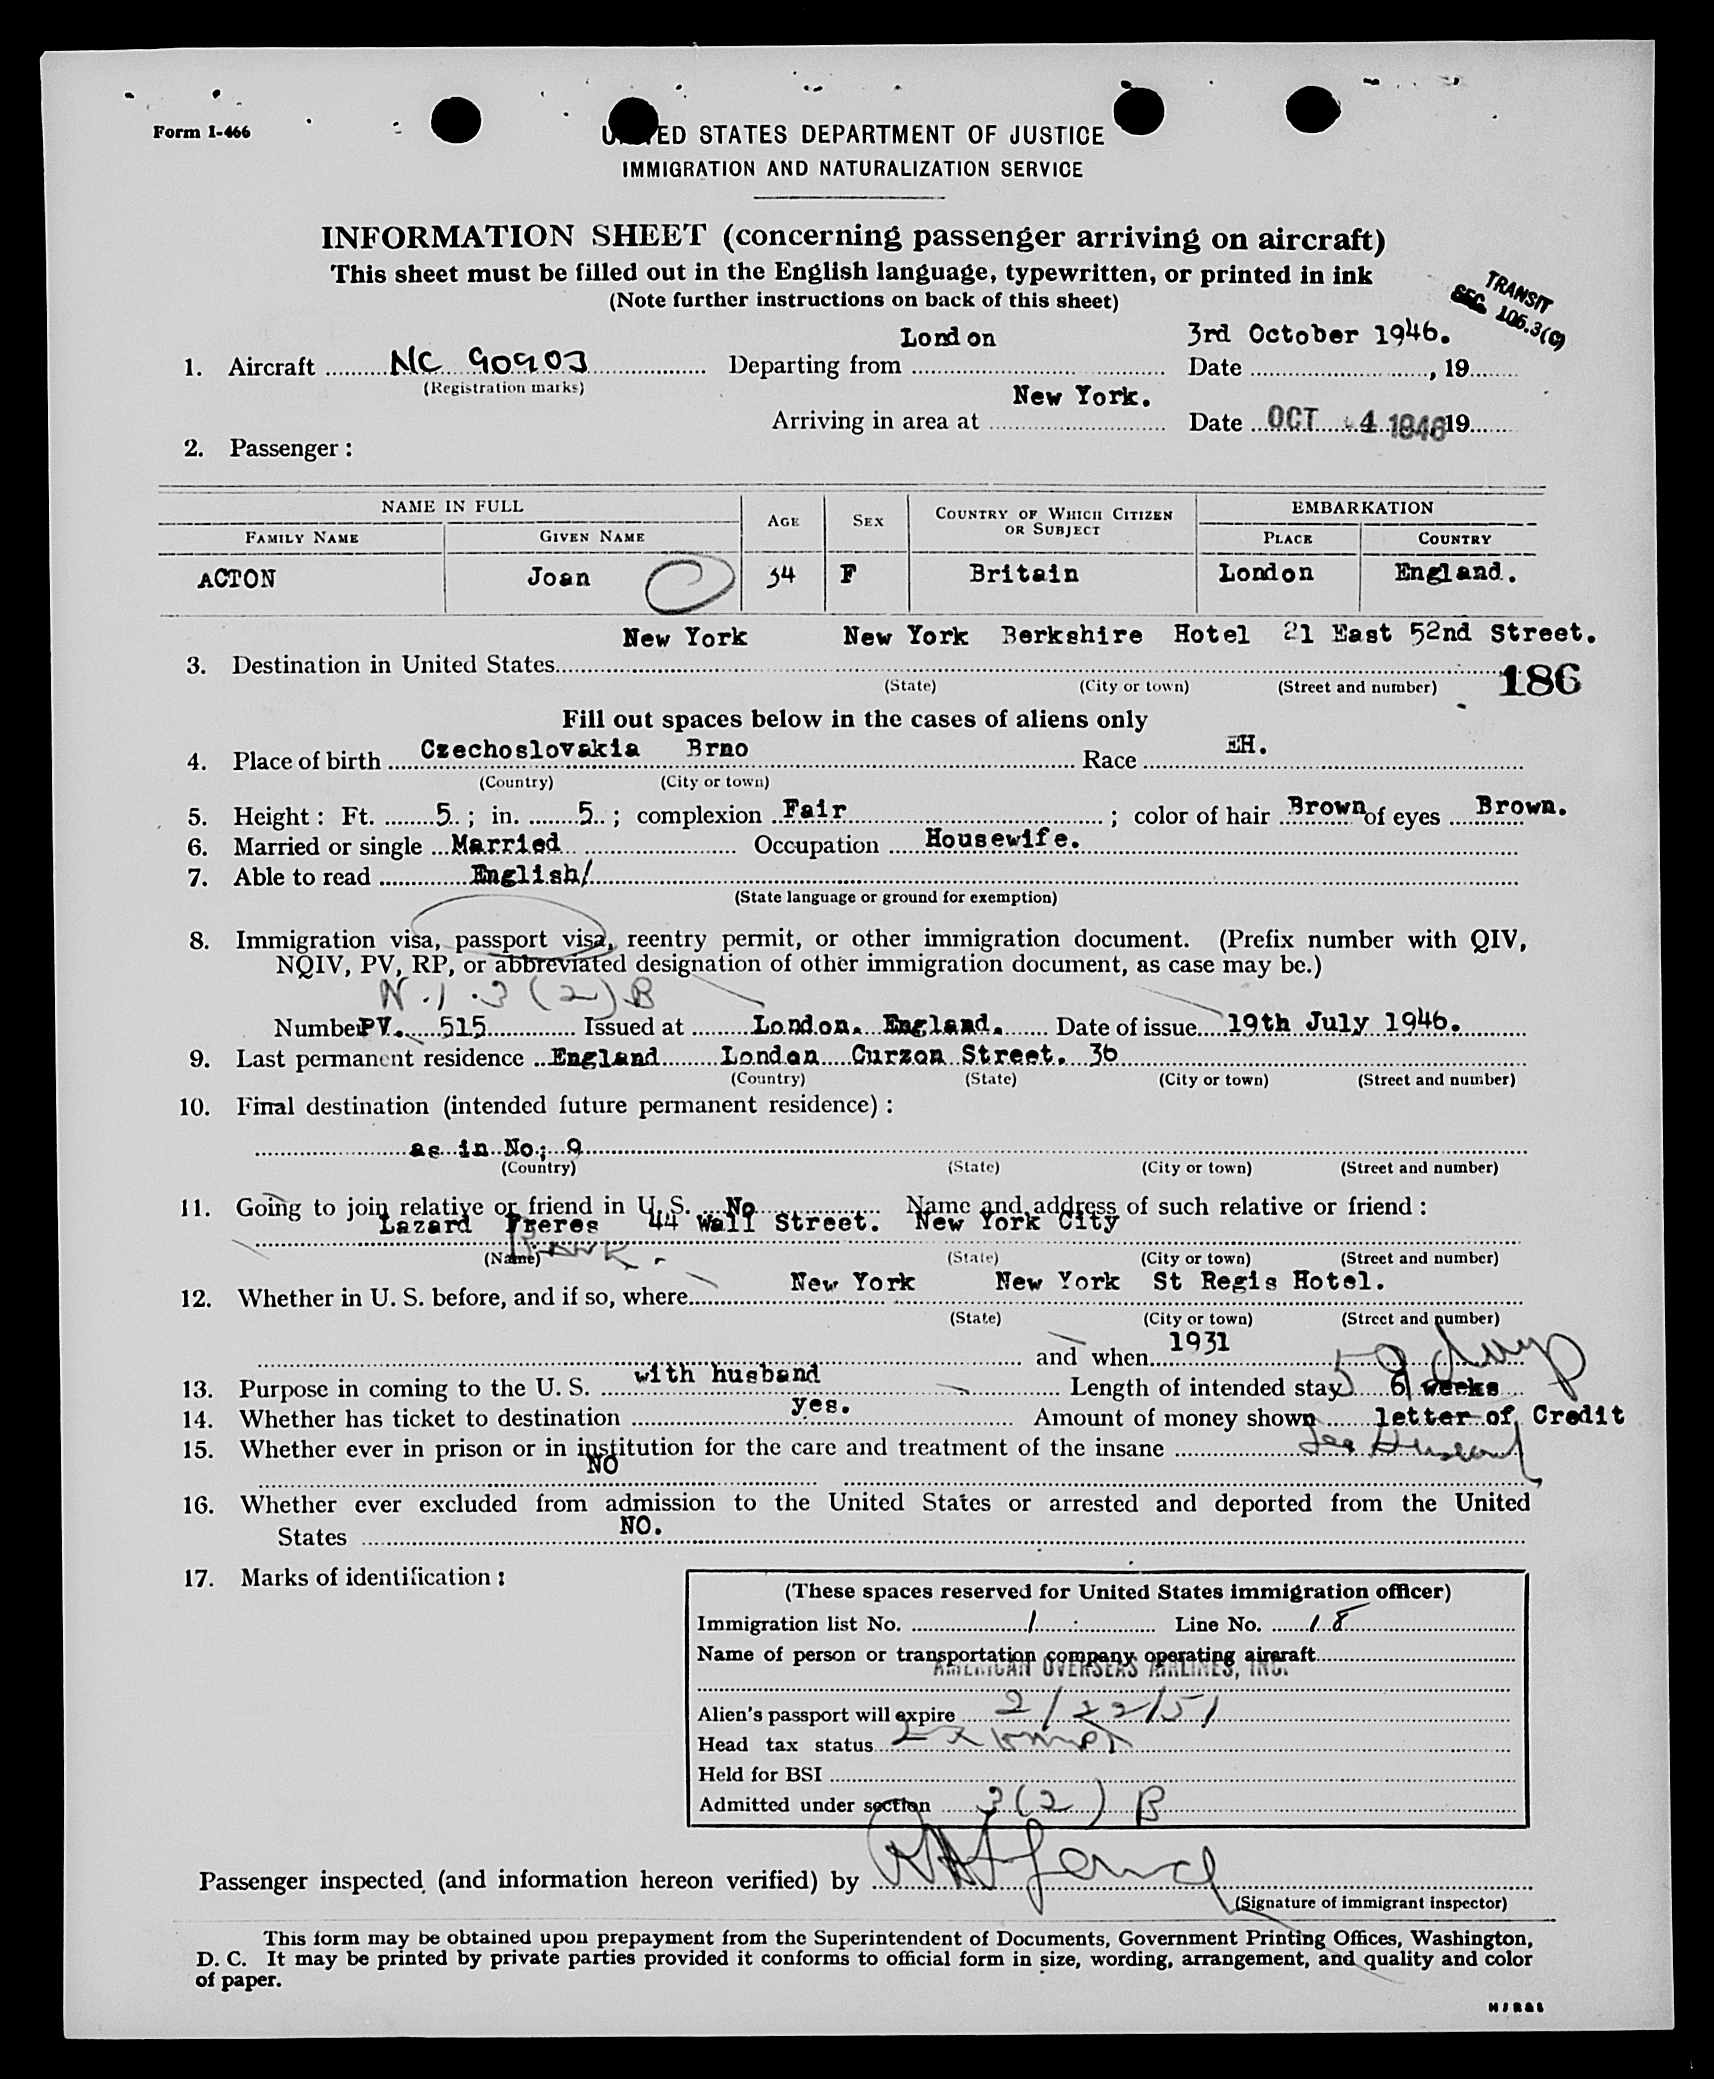 Form I-466
UNITED STATES DEPARTMENT OF JUSTICE
IMMIGRATION AND NATURALIZATION SERVICE
INFORMATION SHEET (concerning passenger arriving on aircraft)
This sheet must be filled out in the English language, typewritten, or printed in ink
(Note further instructions on back of this sheet)
TRANSIT
SEC 106.3(c)
London 3rd October 1946.
1. Aircraft NC 90903 Departing from Date , 19
(Registration marks)
New York.
Arriving in area at Date OCT 4 1946 19
2. Passenger :
NAME IN FULL AGE SEX COUNTRY OF WHICH CITIZEN OR SUBJECT EMBARKATION
FAMILY NAME GIVEN NAME PLACE COUNTRY
ACTON Joan 34 F Britain London England.
New York New York Berkshire Hotel 21 East 52nd Street.
3. Destination in United States
(State) (City or town) (Street and number) 186
Fill out spaces below in the cases of aliens only
4. Place of birth Czechoslovakia Brno Race EH.
(Country) (City or town)
5. Height : Ft. 5 ; in. 5 ; complexion Fair ; color of hair Brown of eyes Brown.
6. Married or single Married Occupation Housewife.
7. Able to read English/
(State language or ground for exemption)
8. Immigration visa, passport visa, reentry permit, or other immigration document. (Prefix number with QIV,
NQIV, PV, RP, or abbreviated designation of other immigration document, as case may be.)
N.I. 3(2)B
Number PV. 515 Issued at London. England. Date of issue 19th July 1946.
9. Last permanent residence England London Curzon Street. 36
(Country) (State) (City or town) (Street and number)
10. Final destination (intended future permanent residence) :
as in No; 9
(Country) (State) (City or town) (Street and number)
11. Going to join relative or friend in U. S. No Name and address of such relative or friend :
Lazard Freres 44 Wall Street. New York City
(Name) (State) (City or town) (Street and number)
Bank
New York New York St Regis Hotel.
12. Whether in U. S. before, and if so, where
(State) (City or town) (Street and number)
and when 1931
59 days
13. Purpose in coming to the U. S. with husband Length of intended stay 6 weeks
14. Whether has ticket to destination yes. Amount of money shown letter of Credit
15. Whether ever in prison or in institution for the care and treatment of the insane
See Husband
NO
16. Whether ever excluded from admission to the United States or arrested and deported from the United
States NO.
17. Marks of identification :
(These spaces reserved for United States immigration officer)
Immigration list No. 1 Line No. 18
Name of person or transportation company operating aircraft
AMERICAN OVERSEAS AIRLINES, INC.
Alien's passport will expire 2/22/51
Head tax status Exempt
Held for BSI
Admitted under section 3(2) B
Passenger inspected (and information hereon verified) by
(Signature of immigrant inspector)
This form may be obtained upon prepayment from the Superintendent of Documents, Government Printing Offices, Washington,
D. C. It may be printed by private parties provided it conforms to official form in size, wording, arrangement, and quality and color
of paper.